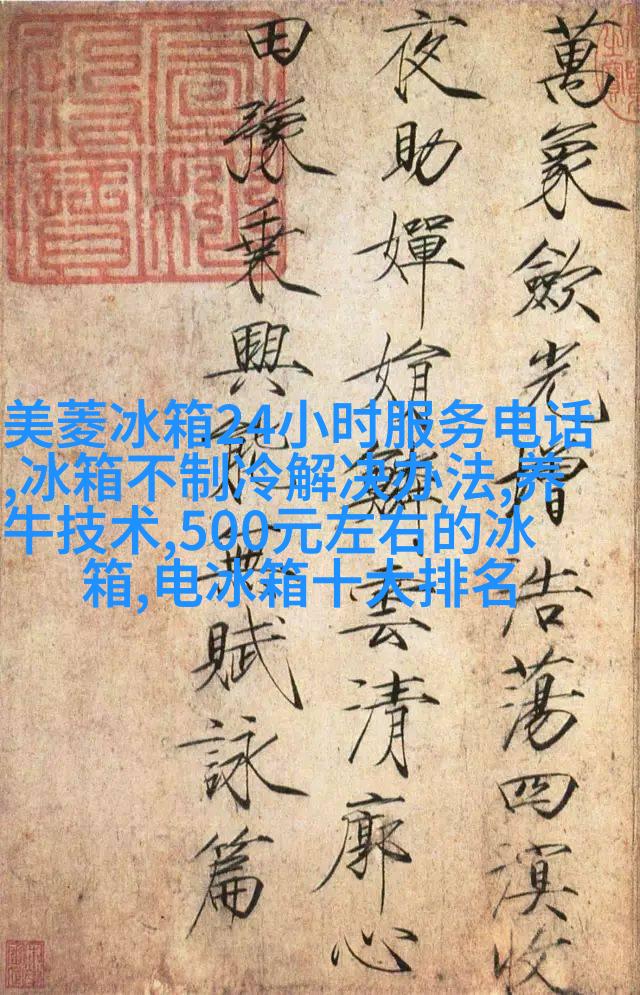 萬象歛光增浩蕩四溟收
夜助嬋娟鱗雲清廓心
田豫乗興能無賦詠篇
美菱冰箱24小时服务电话
,冰箱不制冷解决办法,养
牛技术,500元左右的冰
箱,电冰箱十大排名